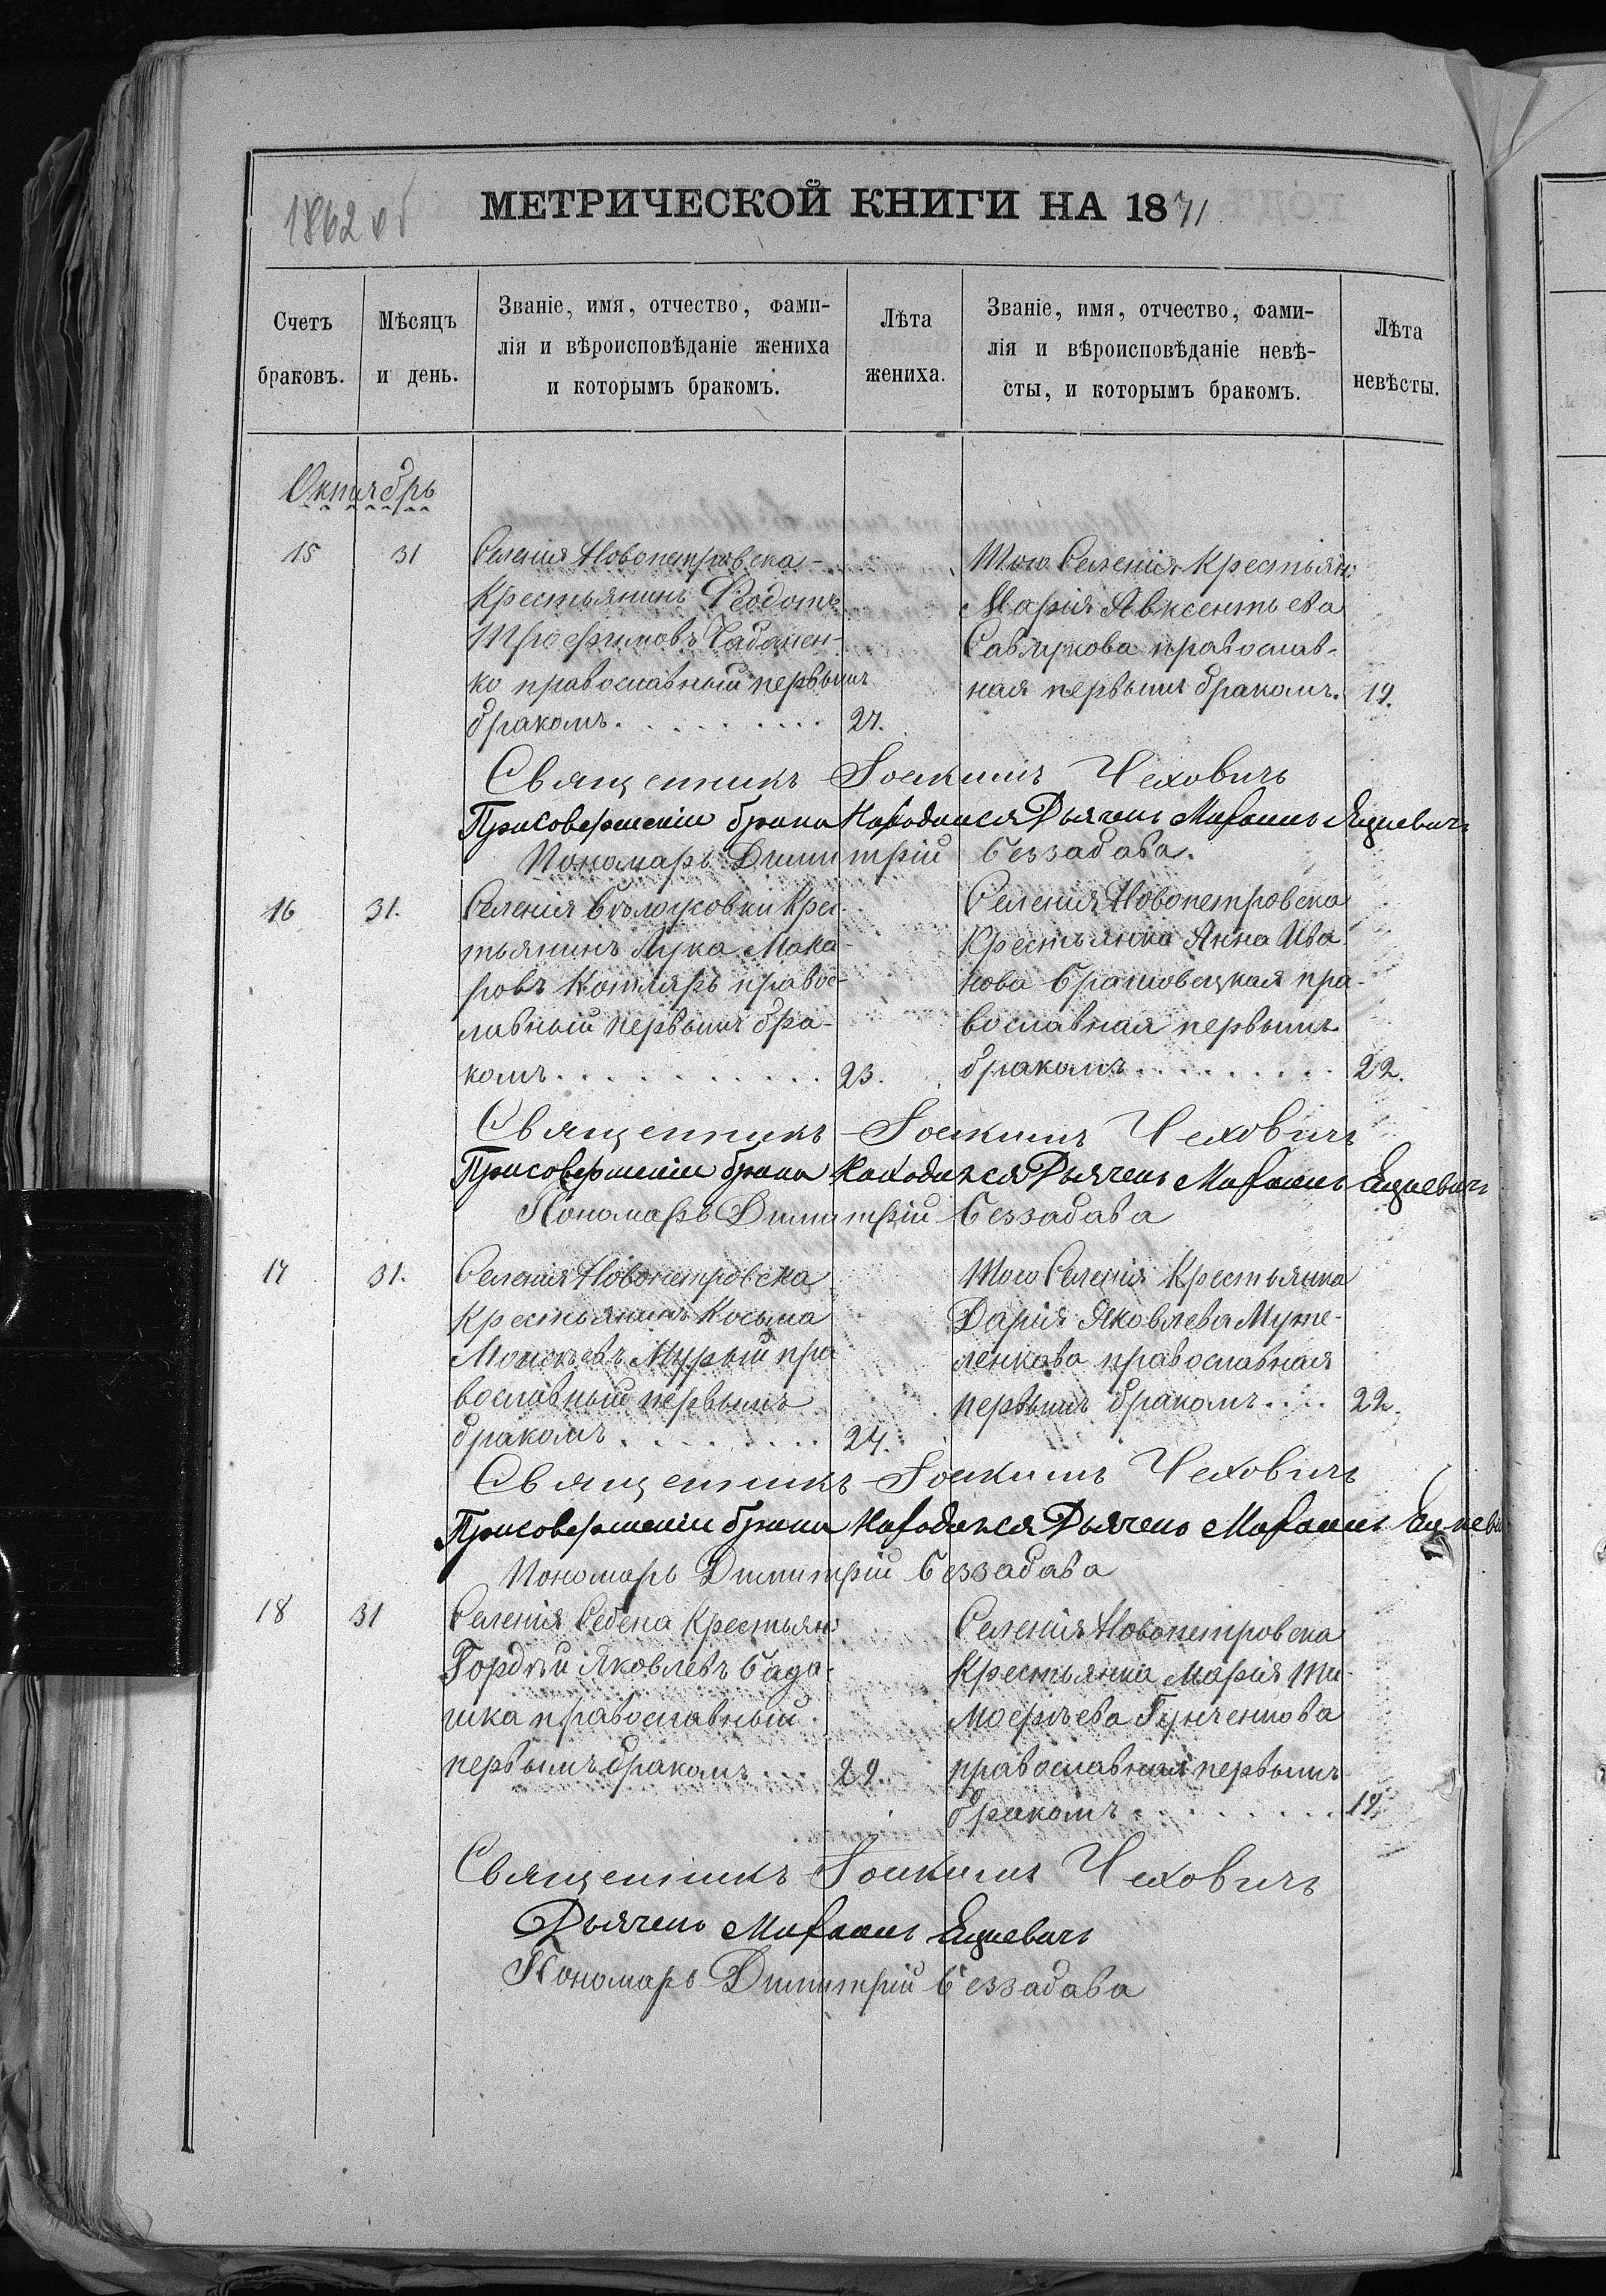 1862 об
МЕТРИЧЕСКОЙ КНИГИ НА 1871
Счетъ браковъ.
Мѣсяцъ и день.
Званіе, имя, отчество, фами-
лія и вѣроисповѣданіе жениха
и которымъ бракомъ.
Лѣта жениха.
Званіе, имя, отчество, фами-
лія и вѣроисповѣданіе невѣ-
сты, и которымъ бракомъ.
Лѣта невѣсты.
Октябрь
15 31
Селенія Новопетровска
Крестьянинъ Ѳеодотъ
Трофимовъ Чабанен-
ко православный первымъ
бракомъ. 27.
Того Селенія Крестьян
Марія Авксентьева
Савлукова православ-
ная первымъ бракомъ. 19.
Священникъ Іоакимъ Чеховичъ
При совершеніи брака находился Дьячекъ Михаилъ Яцкевичъ
Пономарь Димитрій Беззабава.
16 31.
Селенія Бѣлоусовки Крес-
тьянинъ Лука Мака-
ровъ Котляръ правос-
лавный первымъ бра-
комъ 23.
Селенія Новопетровска
Крестьянка Анна Ива
нова Братовецкая пра-
вославная первымъ
бракомъ 22.
Священникъ Іоакимъ Чеховичъ
При совершеніи брака находился Дьячекъ Михаилъ Яцкевичъ
Пономарь Димитрій Беззабава
17 31.
Селенія Новопетровска
Крестьянинъ Косьма
Моисеевъ Мурый пра
вославный первымъ
бракомъ 24.
Того Селенія Крестьянка
Дарія Яковлева Муже-
ленкова православная
первымъ бракомъ 22.
Священникъ Іоакимъ Чеховичъ
При совершеніи брака находился Дьячекъ Михаилъ
Пономарь Димитрій Беззабава
18 31
Селенія Себена Крестьян
Гордѣй Яковлевъ
православный
первымъ бракомъ 29.
Селенія Новопетровска
Крестьянка Марія Ти-
моѳѣева
православная первымъ
бракомъ 19.
Священникъ Іоакимъ Чеховичъ
Дьячекъ Михаилъ Яцкевичъ
Пономарь Димитрій Беззабава